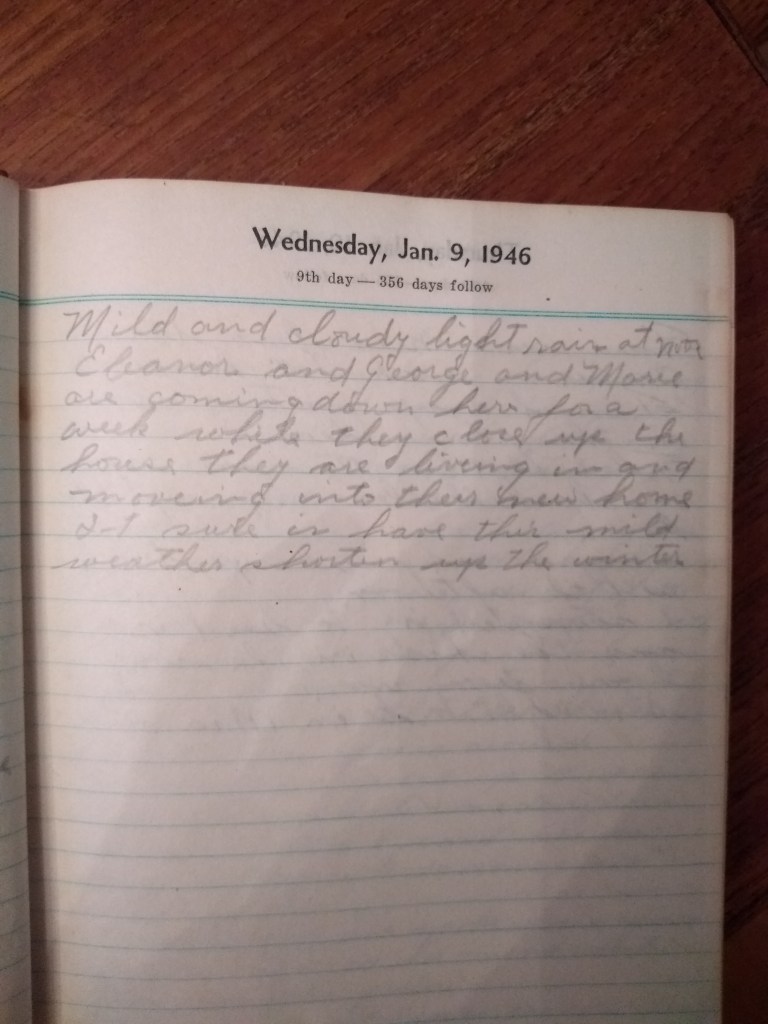 Wednesday, Jan. 9, 1946
9th day — 356 days follow
Mild and cloudy light rain at noon
Eleanor and George and Marie
are coming down here for a
week while they close up the
house they are liveing in and
moveing into their new home
It sure is have this mild
weather shorten up the winter